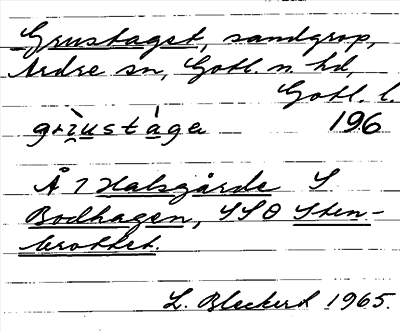 Grustaget, sandgrop,
Ardre sn, Gotl. n. hd,
Gotl. l.
grı̀ustàga 196
Å 7 Halsgårde S
Bodhagen, SSO Sten-
brottet.
L. Bleckert 1965.